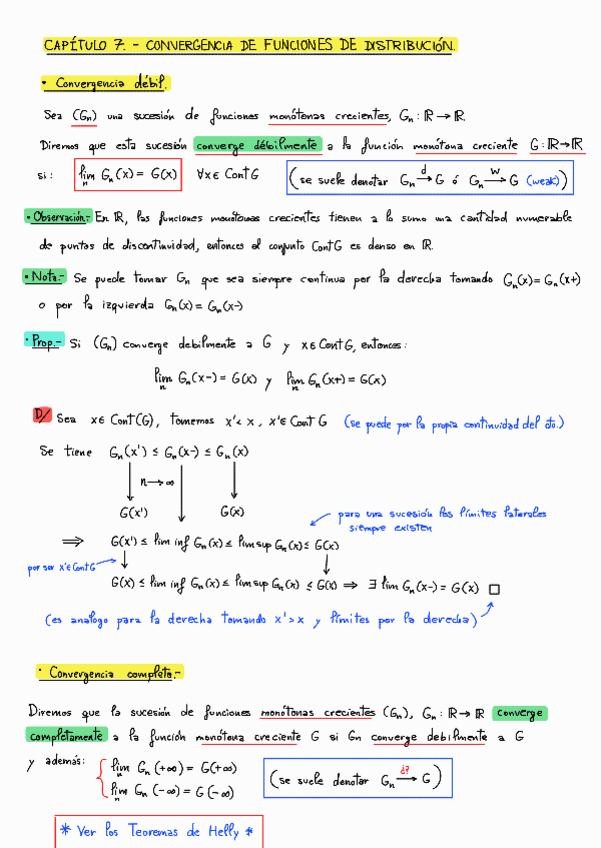 CAPÍTULO 7. - CONVERGENCIA DE FUNCIONES DE DISTRIBUCIÓN.
· Convergencia débil.
Sea (Gₙ) una sucesión de funciones monótonas crecientes, Gₙ: ℝ → ℝ.
Diremos que esta sucesión converge débilmente a la función monótona creciente G: ℝ→ℝ
si: lim_n Gₙ(x) = G(x) ∀x∈ Cont G (se suele denotar Gₙ →^d G ó Gₙ →^w G (weak))
· Observación:- En ℝ, las funciones monótonas crecientes tienen a lo sumo una cantidad numerable
de puntos de discontinuidad, entonces el conjunto Cont G es denso en ℝ.
· Nota:- Se puede tomar Gₙ que sea siempre continua por la derecha tomando Gₙ(x) = Gₙ(x+)
o por la izquierda Gₙ(x) = Gₙ(x-)
· Prop.- Si (Gₙ) converge debilmente a G y x∈ Cont G, entonces:
lim_n Gₙ(x-) = G(x) y lim_n Gₙ(x+) = G(x)
D/ Sea x∈ Cont(G), tomemos x'< x, x'∈ Cont G (se puede por la propia continuidad del cto.)
Se tiene Gₙ(x') ≤ Gₙ(x-) ≤ Gₙ(x)
n→∞
G(x') G(x)
para una sucesión los límites laterales
siempre existen
⟹ G(x') ≤ lim inf Gₙ(x) ≤ lim sup Gₙ(x) ≤ G(x)
por ser x'∈ Cont G
G(x) ≤ lim inf Gₙ(x) ≤ lim sup Gₙ(x) ≤ G(x) ⟹ ∃ lim Gₙ(x-) = G(x) □
(es analogo para la derecha tomando x'>x y límites por la derecha)
· Convergencia completa:-
Diremos que la sucesión de funciones monótonas crecientes (Gₙ), Gₙ: ℝ → ℝ converge
completamente a la función monótona creciente G si Gₙ converge debilmente a G
y además: { lim_n Gₙ(+∞) = G(+∞)
lim_n Gₙ(-∞) = G(-∞)
(se suele denotar Gₙ →^{d?} G)
* Ver los Teoremas de Helly *